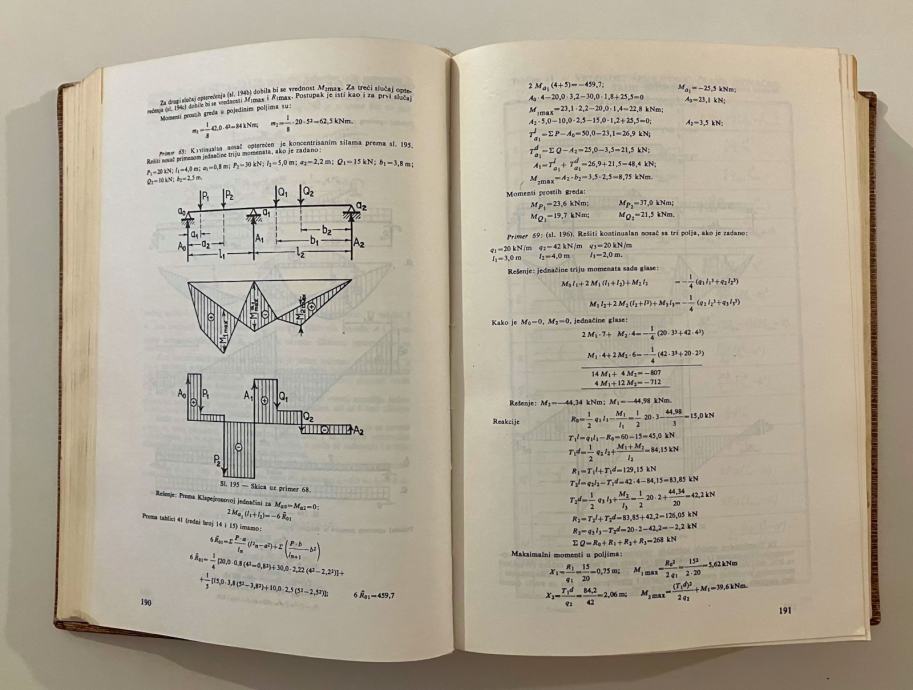 Za drugi slučaj opterećenja (sl. 194b) dobila bi se vrednost M₂max. Za treći slučaj opte-
rećenja (sl. 194c) dobile bi se vrednosti M₁max i R₁max. Postupak je isti kao i za prvi slučaj
Momenti prostih greda u pojedinim poljima su:
m₁=1/8 42,0·4²=84 kNm; m₂=1/8·20·5²=62,5 kNm.
Primer 68: Kontinualan nosač opterećen je koncentrisanim silama prema sl. 195.
Rešiti nosač primenom jednačine triju momenata, ako je zadano:
P₁=20 kN; l₁=4,0 m; a₁=0,8 m; P₂=30 kN; l₂=5,0 m; a₂=2,2 m; Q₁=15 kN; b₁=3,8 m;
Q₂=10 kN; b₂=2,5 m.
P₁ P₂ Q₁ Q₂
a₀ a₁ a₂
A₀ a₁ a₂ A₁ b₂ b₁ A₂
l₁ l₂
M₁max M₂max
A₀ P₁ A₁ Q₁
Q₂ A₂
P₂
Sl. 195 — Skica uz primer 68.
Rešenje: Prema Klapejronovoj jednačini za Ma₀=Ma₂=0:
2 Ma₁ (l₁+l₂)=-6 R̂₀₁
Prema tablici 41 (redni broj 14 i 15) imamo:
6 R̂₀₁=Σ P·a/lₙ (l²ₙ-a²)+Σ (P·b/lₙ₊₁ -b²)
6 R̂₀₁=1/4 [20,0·0,8 (4²-0,8²)+30,0·2,22 (4²-2,2²)]+
+1/5 [15,0·3,8 (5²-3,8²)+10,0·2,5 (5²-2,5²)]; 6 R̂₀₁=459,7
190
2 Ma₁ (4+5)=-459,7; Ma₁=-25,5 kNm;
A₀·4-20,0·3,2-30,0·1,8+25,5=0 A₀=23,1 kN;
M₁max=23,1·2,2-20,0·1,4=22,8 kNm;
A₂·5,0-10,0·2,5-15,0·1,2+25,5=0; A₂=3,5 kN;
Tˡa₁=Σ P-A₀=50,0-23,1=26,9 kN;
Tᵈa₁=Σ Q-A₂=25,0-3,5=21,5 kN;
A₁=Tˡa₁+Tᵈa₁=26,9+21,5=48,4 kN;
M₂max=A₂·b₂=3,5·2,5=8,75 kNm.
Momenti prostih greda:
MP₁=23,6 kNm; MP₂=37,0 kNm;
MQ₁=19,7 kNm; MQ₂=21,5 kNm.
Primer 69: (sl. 196). Rešiti kontinualan nosač sa tri polja, ako je zadano:
q₁=20 kN/m q₂=42 kN/m q₃=20 kN/m
l₁=3,0 m l₂=4,0 m l₃=2,0 m.
Rešenje: jednačine triju momenata sada glase:
M₀ l₁+2 M₁ (l₁+l₂)+M₂ l₂ =-1/4 (q₁ l₁³+q₂ l₂³)
M₁ l₂+2 M₂ (l₂+l³)+M₃ l₃=-1/4 (q₂ l₂³+q₃ l₃³)
Kako je M₀=0, M₃=0, jednačine glase:
2 M₁·7+ M₂·4=-1/4 (20·3³+42·4³)
M₁·4+2 M₂·6=-1/4 (42·3³+20·2³)
14 M₁+ 4 M₂=-807
4 M₁+12 M₂=-712
Rešenje: M₂=-44,34 kNm; M₁=-44,98 kNm.
Reakcije R₀=1/2 q₁ l₁-M₁/l₁=1/2 20·3-44,98/3=15,0 kN
T₁l=q₁l₁-R₀=60-15=45,0 kN
T₁d=1/2 q₂ l₂+M₁+M₂/l₂=84,15 kN
R₁=T₁l+T₁d=129,15 kN
T₂l=q₂l₂-T₁d=42·4-84,15=83,85 kN
T₂d=1/2 q₃ l₃+M₂/l₃=1/2 20·2+44,34/20=42,2 kN
R₂=T₂l+T₂d=83,85+42,2=126,05 kN
R₃=q₃l₃-T₂d=20·2-42,2=-2,2 kN
Σ Q=R₀+R₁+R₂+R₃=268 kN
Maksimalni momenti u poljima:
X₁=R₁/q₁=15/20=0,75 m; M₁max=R₀²/2 q₁=15²/2·20=5,62 kNm
X₂=T₁d/q₂=84,2/42=2,06 m; M₂max=(T₁d)²/2 q₂+M₁=39,6 kNm.
191